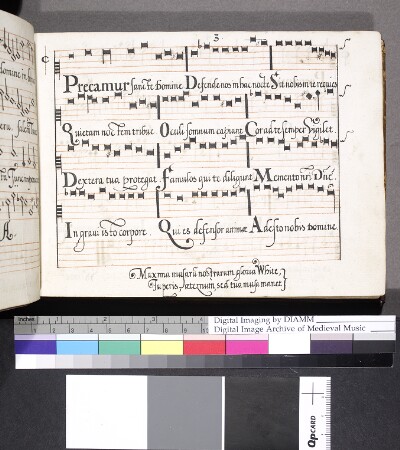 3
Precamur sancte domine Defende nos in hac nocte Sit nobis in te requies
Quietam noctem tribue Oculi somnum capiant Cor ad te semper vigilet
Dextera tua protegat Famulos qui te diligunt Memento nri Dne
In gravi isto corpore Qui es defensor animæ Adesto nobis domine.
Maxima musarū nostrarum gloria White,
Tu peris, æternum, sed tua musa manet.
inches 1 2
Digital Imaging by DIAMM
Digital Image Archive of Medieval Music
QPCARD